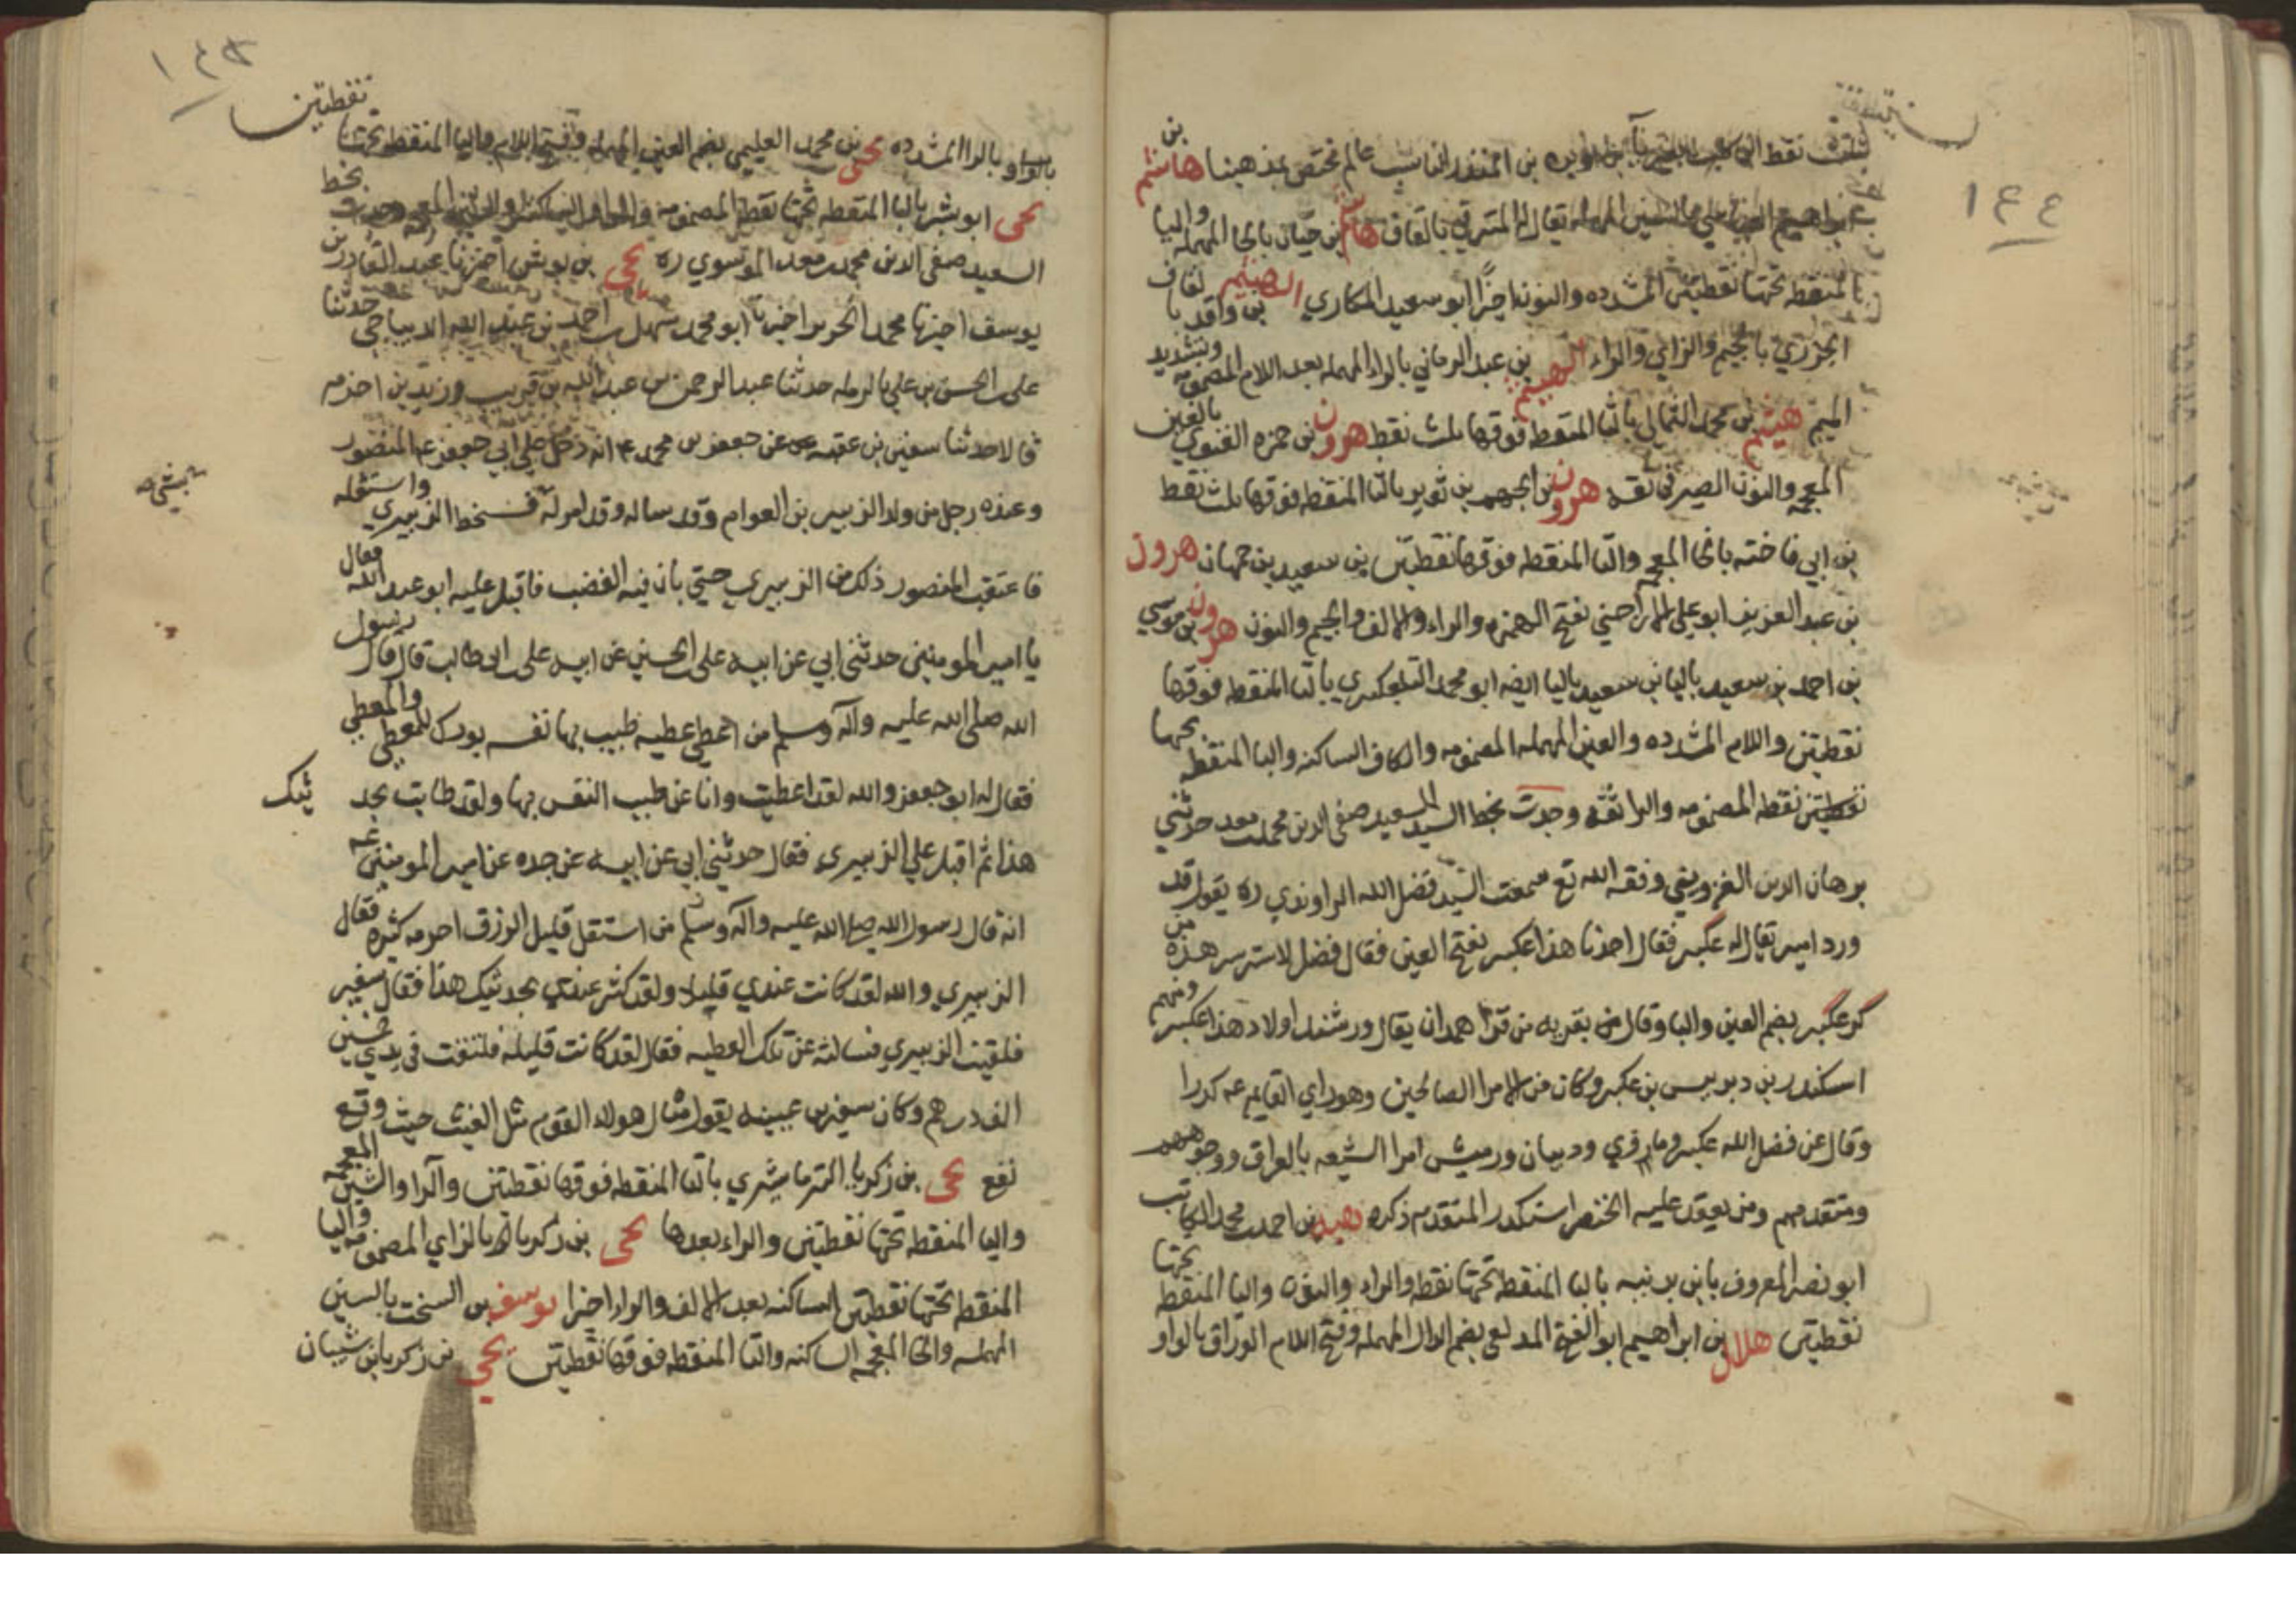 ١٤٤
بثلث نقط بن المنذر الناسب عالم مختص بمذهبنا هاشم بن
ابراهيم العباسي بالسين المهمله يقال له المشرقي بالقاف هاشم بن حيان بالحا المهمله واليا
المنقطه تحتها نقطتين المشدده والنون اخيرا ابو سعيد المكاري الهيثم بن واقد بالقاف
الجزري بالجيم والزاي والراء الهيثم بن عبد الرماني بالراء المهمله بعد اللام المضمومه وتشديد
الميم هيثم بن محمد الثمالي بالثا المنقطه فوقها ثلث نقط هرون بن حمزه الغنوي بالغين
المعجمه والنون الصيرفي ثقه هرون بن الجهم بن ثوير بالثا المنقطه فوقها ثلث نقط
بن ابي فاخته بالخا المعجمه والتا المنقطه فوقها نقطتين بن سعيد بن جهمان هرون
بن عبد العزيز ابو علي الاراجني بفتح الهمزه والراء والالف والجيم والنون هرون بن موسي
بن احمد بن سعيد باليا بن سعيد باليا ايضه ابو محمد التلعكبري بالتا المنقطه فوقها
نقطتين واللام المشدده والعين المهمله المضمومه والكاف الساكنه والبا المنقطه تحتها
نقطه المضمومه والرا ثقه وجدت بخط السيد السعيد صفي الدين محمد بن معد حدثني
برهان الدين القزويني وفقه الله تع سمعت السيد فضل الله الراوندي ره يقول قد
ورد امير يقال له عكبر فقال احدنا هذا عكبر بفتح العين فقال فضل الله من هذه
عكبر بضم العين والبا وقال من بقريه من قرا همدان يقال ورشند اولاد هذا عكبر ومنهم
اسكندر بن دبربيس بن عكبر وكان من الامرا الصالحين وهو راي القايم عه كررا
وقال عن فضل الله عكبر ودبيان امرا الشيعه بالعراق ووجوههم
ومتقدمهم ومن يعقد عليه الخنصر اسكندر المتقدم ذكره هبه بن احمد بن محمد الكاتب
ابو نصر المعروف بابن برنيه بالبا المنقطه تحتها نقطه والراء والنون واليا المنقطه تحتها
نقطتين هلال بن ابراهيم ابو الفتح المدلعي بضم الدال المهمله وفتح اللام الوراق بالواو
نقطتين
بالواو بالرا المشدده يحيى بن محمد العليمي بضم العين المهمله وفتح اللام واليا المنقطه تحتها
يحيى ابو بشر باليا المنقطه تحتها نقطه المضمومه بخط
السعيد صفي الدين محمد بن معد الموسوي ره يحيى بن بوش اخبرنا عبد القادر بن
يوسف اخبرنا محمد الحريري اخبرنا ابو محمد سهل بن احمد بن عبد الله الديباجي حدثنا
على بن الحسن بن علي بالرمله حدثنا عبد الرحمن بن عبد الله بن قريب وزيد بن اخزم
قالا حدثنا سفين بن عيينه عن جعفر بن محمد ع انه دخل علي ابي جعفر المنصور
وعنده رجل من ولد الزبير بن العوام وقد ساله وقد امر له فسخط الزبيري واستقله
فاعتقب المنصور ذلك من الزبيري حتي بان فيه الغضب فاقبل عليه ابو عبد الله فقال
يا امير المومنين حدثني ابي عن ابيه على بن الحسين عن ابيه على بن ابي طالب قال قال رسول
الله صلى الله عليه وآله وسلم من اعطي عطيه طيب بها نفسه بورك للمعطي والمعطي
فقال له ابو جعفر والله لقد اعطيت وانا غير طيب النفس بها ولقد طابت بحديثك
هذا ثم اقبل علي الزبيري فقال حدثني ابي عن ابيه عن جده عن امير المومنين عه
انه قال رسول الله صلى الله عليه وآله وسلم من استقل قليل الرزق احرمه كثيره فقال
الزبيري والله لقد كانت عندي قليلا ولقد كثر عندي بحديثك هذا فقال سفين
فلقيت الزبيري فسالته عن تلك العطيه فقال لقد كانت قليله فبلغت في يدي خمسين
الف درهم وكان سفين بن عيينه يقول مثال هولاء القوم مثل الغيث حيث وقع
نفع يحيى بن زكريا الترماشيري بالتا المنقطه فوقها نقطتين والرا والشين المعجمه
واليا المنقطه تحتها نقطتين والراء بعدها يحيى بن زكريا بالزاي المضمومه واليا
المنقطه تحتها نقطتين الساكنه بعد الالف والراء اخيرا يوسف بن السخت بالسين
المهمله والخا المعجمه الساكنه والتا المنقطه فوقها نقطتين يحيى بن زكريا بن شيبان